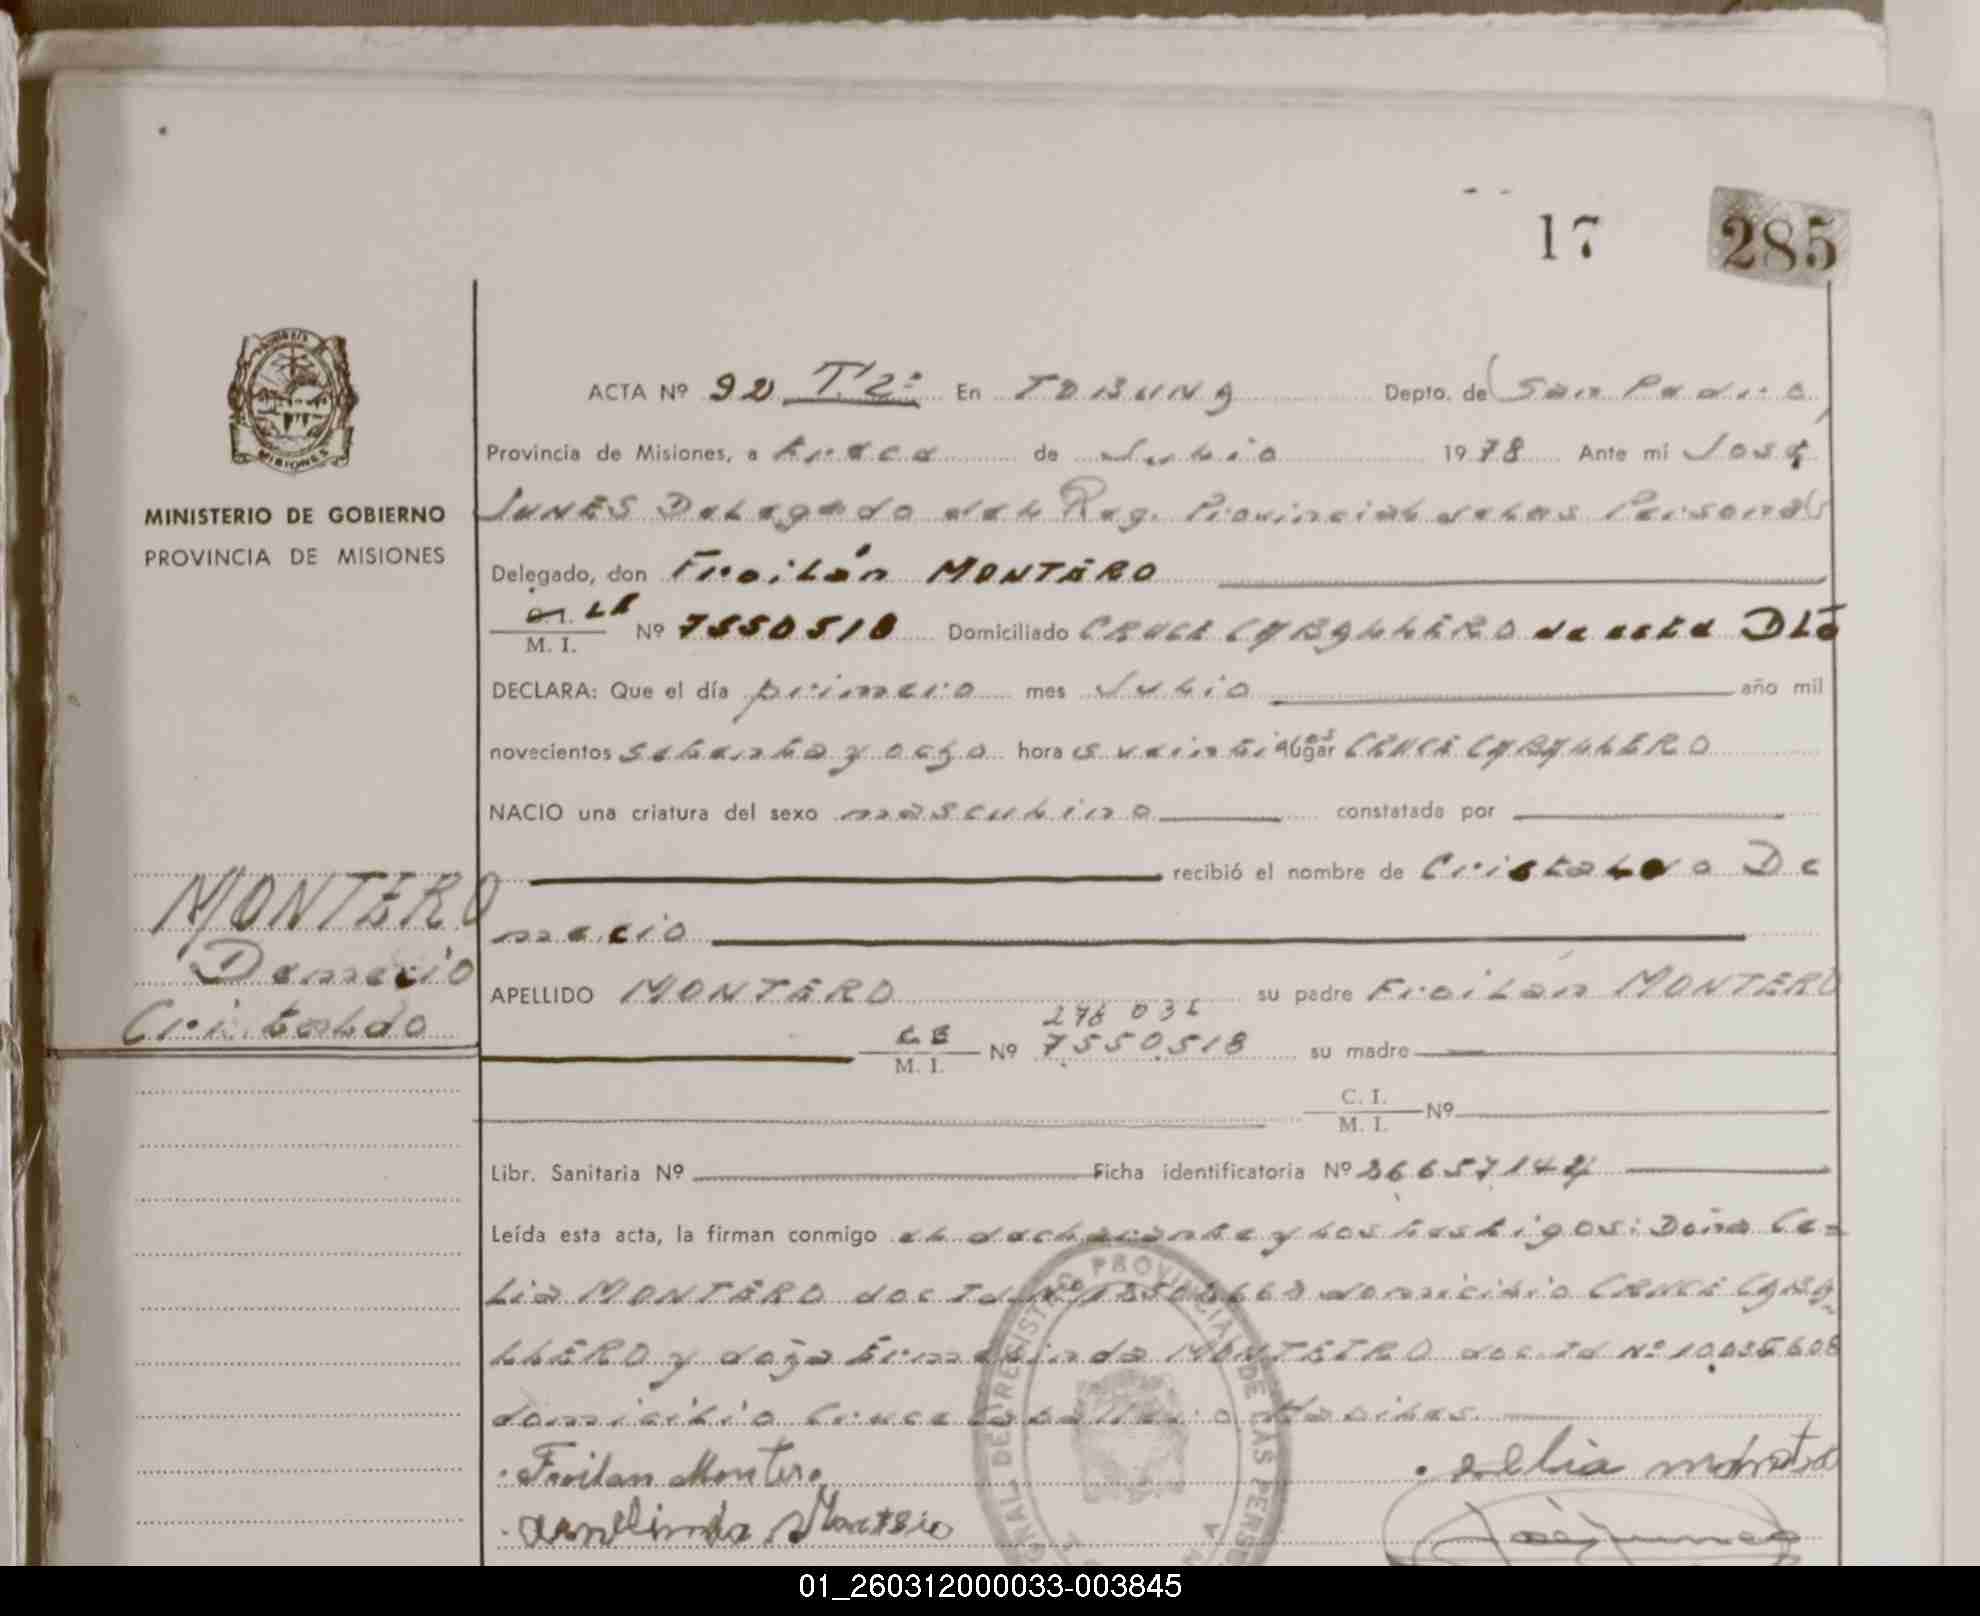 17 285
ACTA Nº 92 T. 2º En TOBUNA Depto. de San Pedro,
Provincia de Misiones, a trece de Julio 1978 Ante mi José
JUNES Delegado del Reg. Provincial de las Personas
MINISTERIO DE GOBIERNO
PROVINCIA DE MISIONES
Delegado, don Froilán MONTERO
M. I. Nº 7550518 Domiciliado CRUCE CABALLERO de este Dtō
DECLARA: Que el día primero mes Julio año mil
novecientos setenta y ocho hora s lugar CRUCE CABALLERO
NACIO una criatura del sexo masculino constatada por
recibió el nombre de Cristaldo De
mecio
MONTERO
Demecio
Cristaldo
APELLIDO MONTERO su padre Froilán MONTERO
M. I. Nº 7550518 su madre
C. I.
M. I. Nº
Libr. Sanitaria Nº Ficha identificatoria Nº
Leída esta acta, la firman conmigo el declarante y los testigos: Doña Ce=
lia MONTERO doc Id Nº domicilio CRUCE CABA
LLERO y doña Ermelinda MONTEIRO doc Id Nº
domicilio Cruce Caballero Habiles.
Froilan Montero
MISIONES
REGISTRO PROVINCIAL DE LAS PERSO
01_260312000033-003845